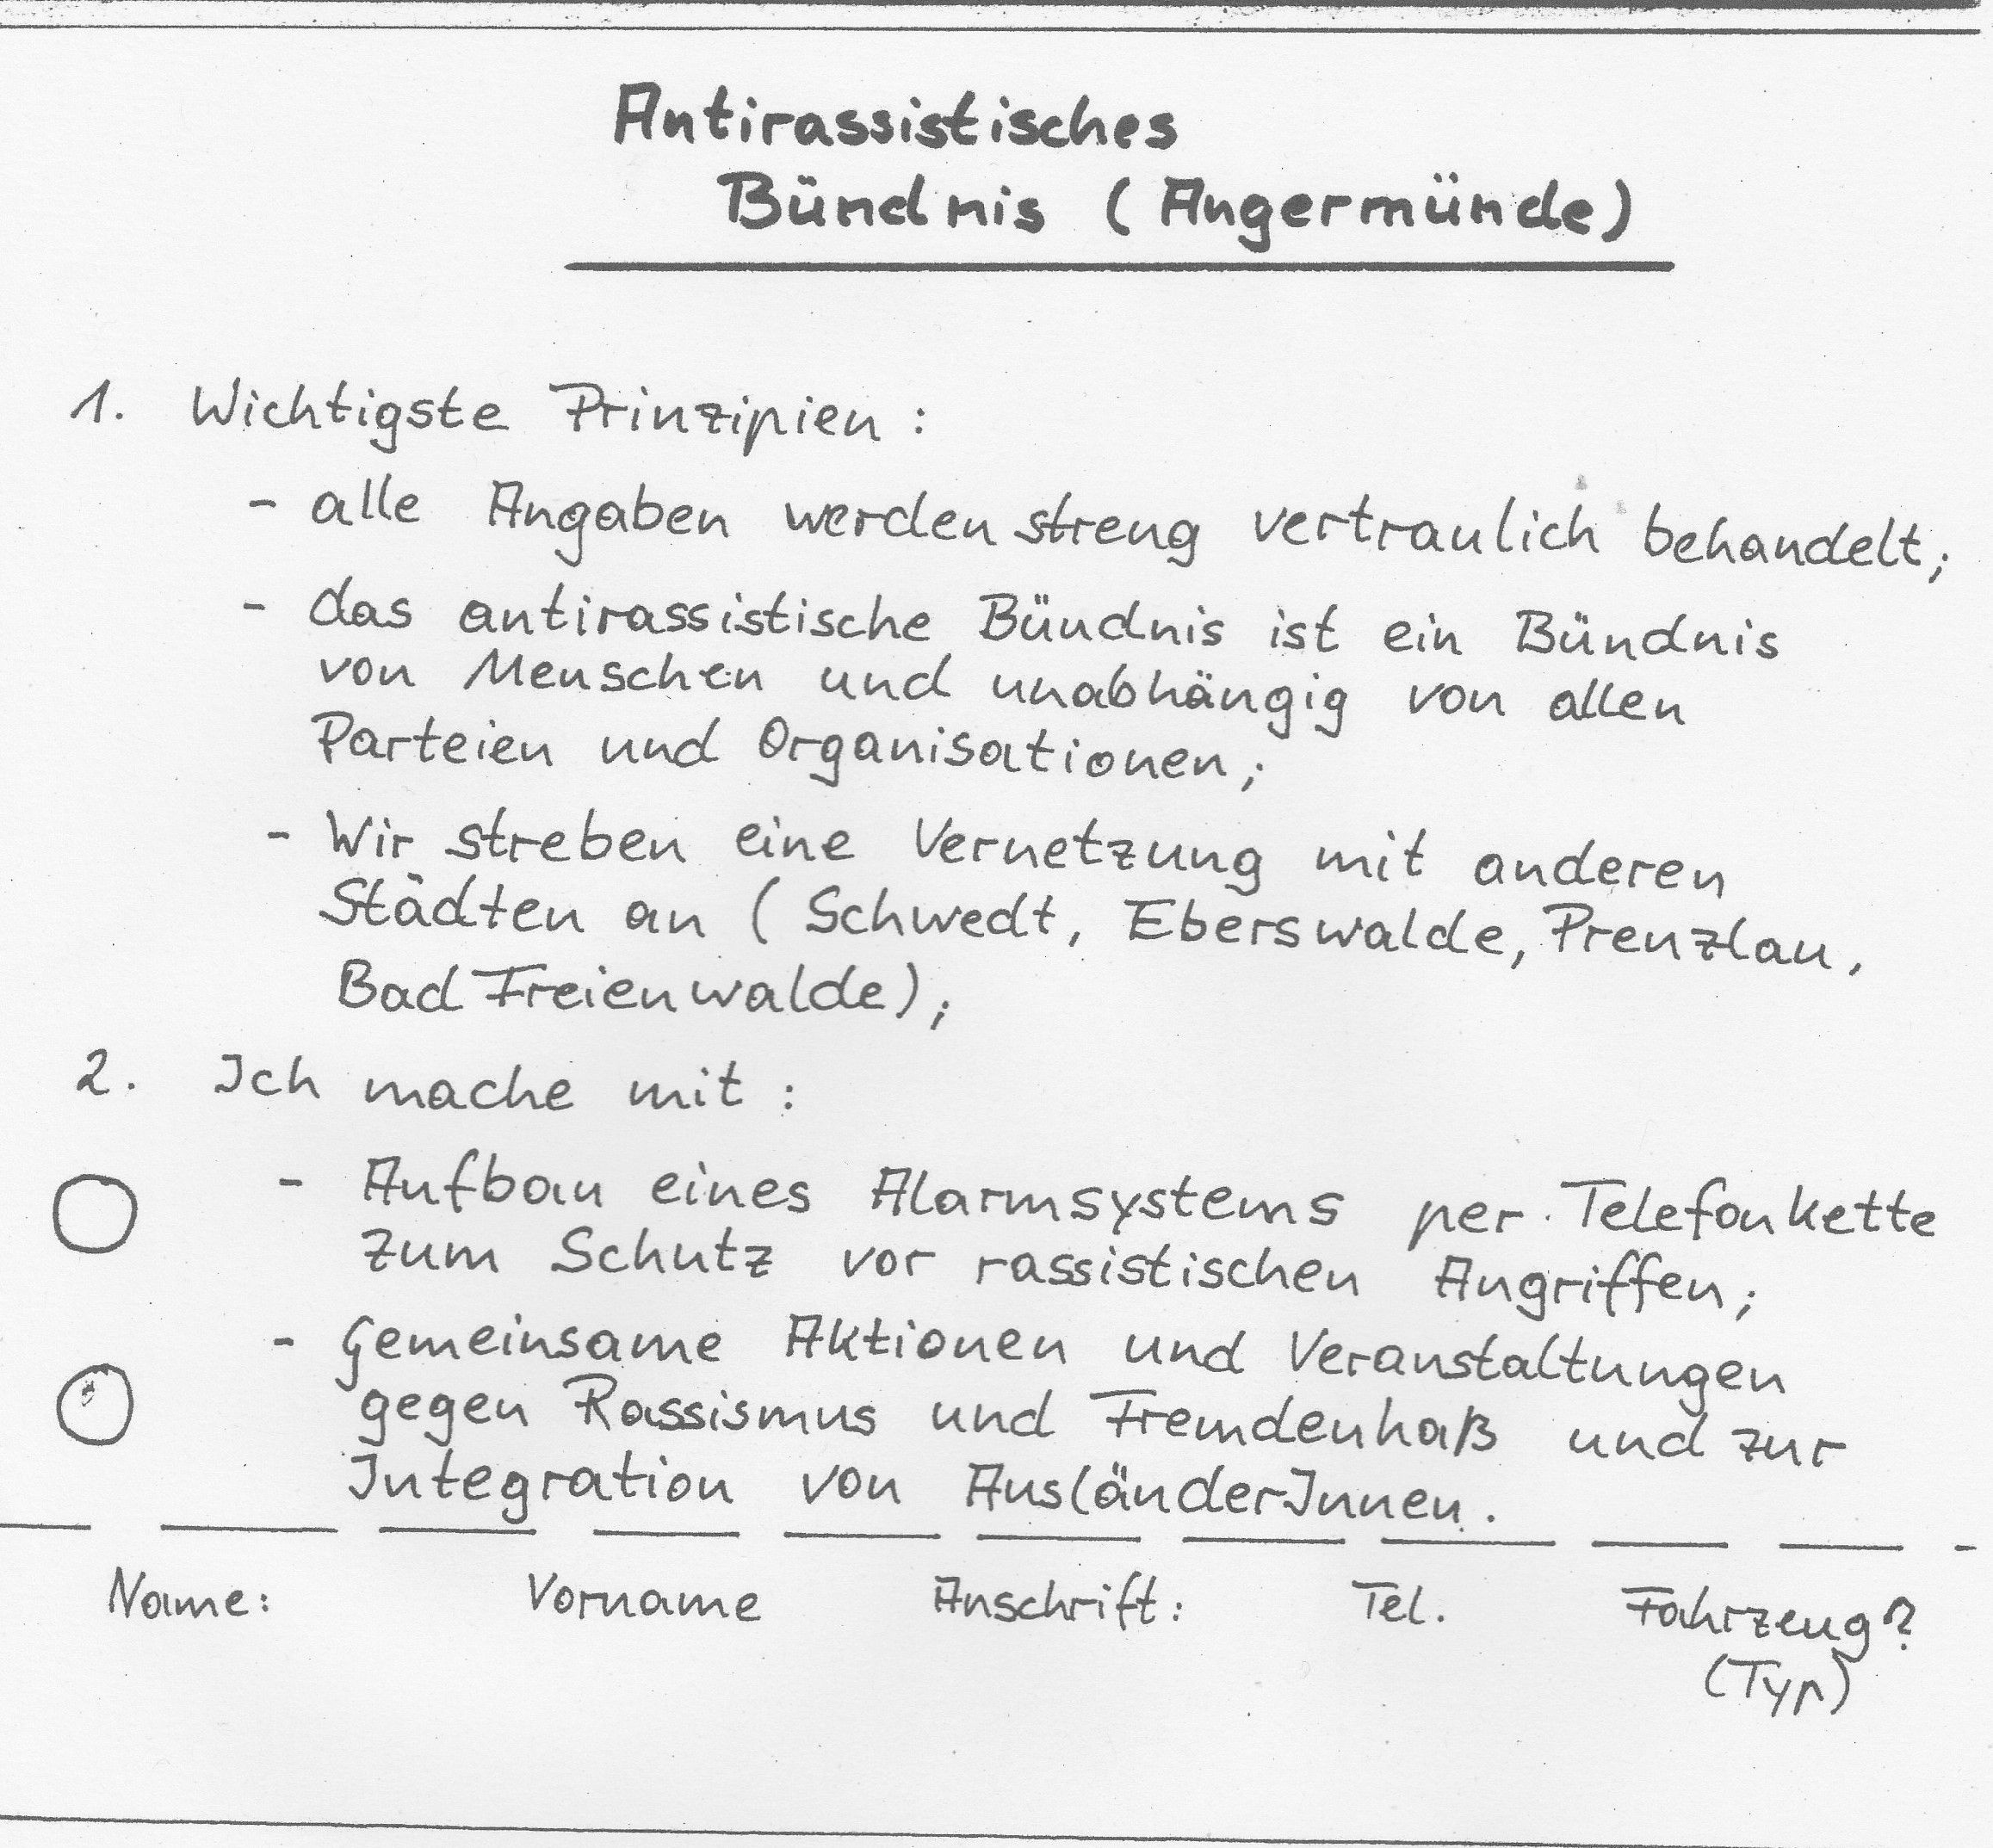 Antirassistisches
Bündnis (Angermünde)
1. Wichtigste Prinzipien:
- alle Angaben werden streng vertraulich behandelt;
- das antirassistische Bündnis ist ein Bündnis
von Menschen und unabhängig von allen
Parteien und Organisationen;
- Wir streben eine Vernetzung mit anderen
Städten an (Schwedt, Eberswalde, Prenzlau,
Bad Freienwalde);
2. Ich mache mit:
- Aufbau eines Alarmsystems per Telefonkette
zum Schutz vor rassistischen Angriffen;
- Gemeinsame Aktionen und Veranstaltungen
gegen Rassismus und Fremdenhaß und zur
Integration von AusländerInnen.
Name: Vorname Anschrift: Tel. Fahrzeug?
(Typ)